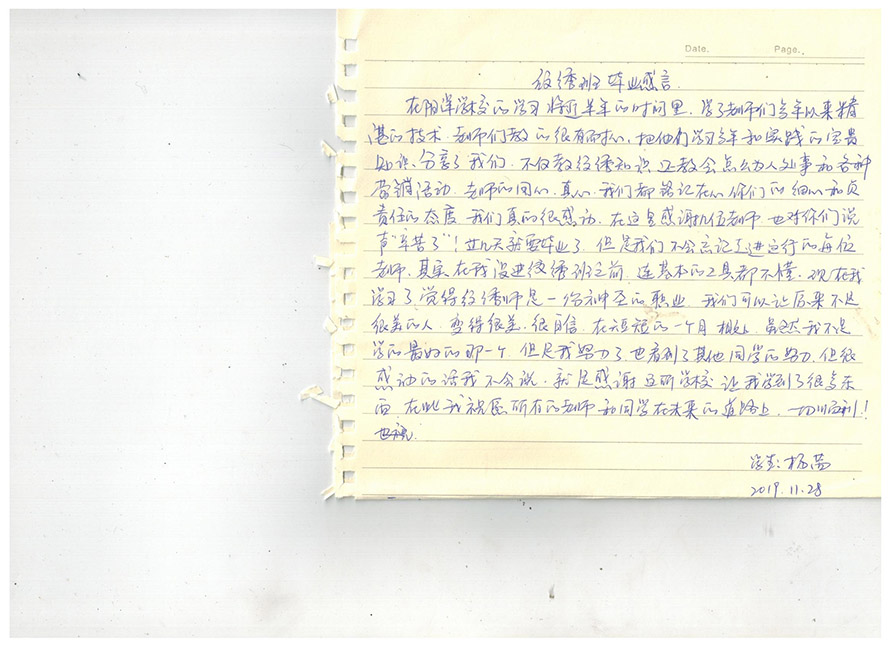 Date. Page.
纹绣班毕业感言
在阳洋学校的学习将近半年的时间里，学了老师们多年以来精
湛的技术，老师们教的很有耐心，把他们学习多年和实践的宝贵
知识，分享了我们，不仅教纹绣知识，还教会怎么为人处事和各种
营销活动，老师的用心，真心，我们都铭记在心你们的细心和负
责任的态度，我们真的很感动，在这里感谢几位老师，也对你们说
声“辛苦了”！过几天就要毕业了，但是我们不会忘记了进这行的每位
老师，其实在我没进纹绣班之前，连基本的工具都不懂，现在我
学习了觉得纹绣师是一份神圣的职业，我们可以让原来不是
很美的人，变得很美，很自信，在短短的一个月相处，虽然我不是
学的最好的那一个，但是我努力了，也看到了其他同学的努力，但很
感动的话我不会说，就是感谢这所学校让我学到了很多东
西，在此我祝愿所有的老师和同学在未来的道路上，一切顺利！
学生：杨
2019.11.28